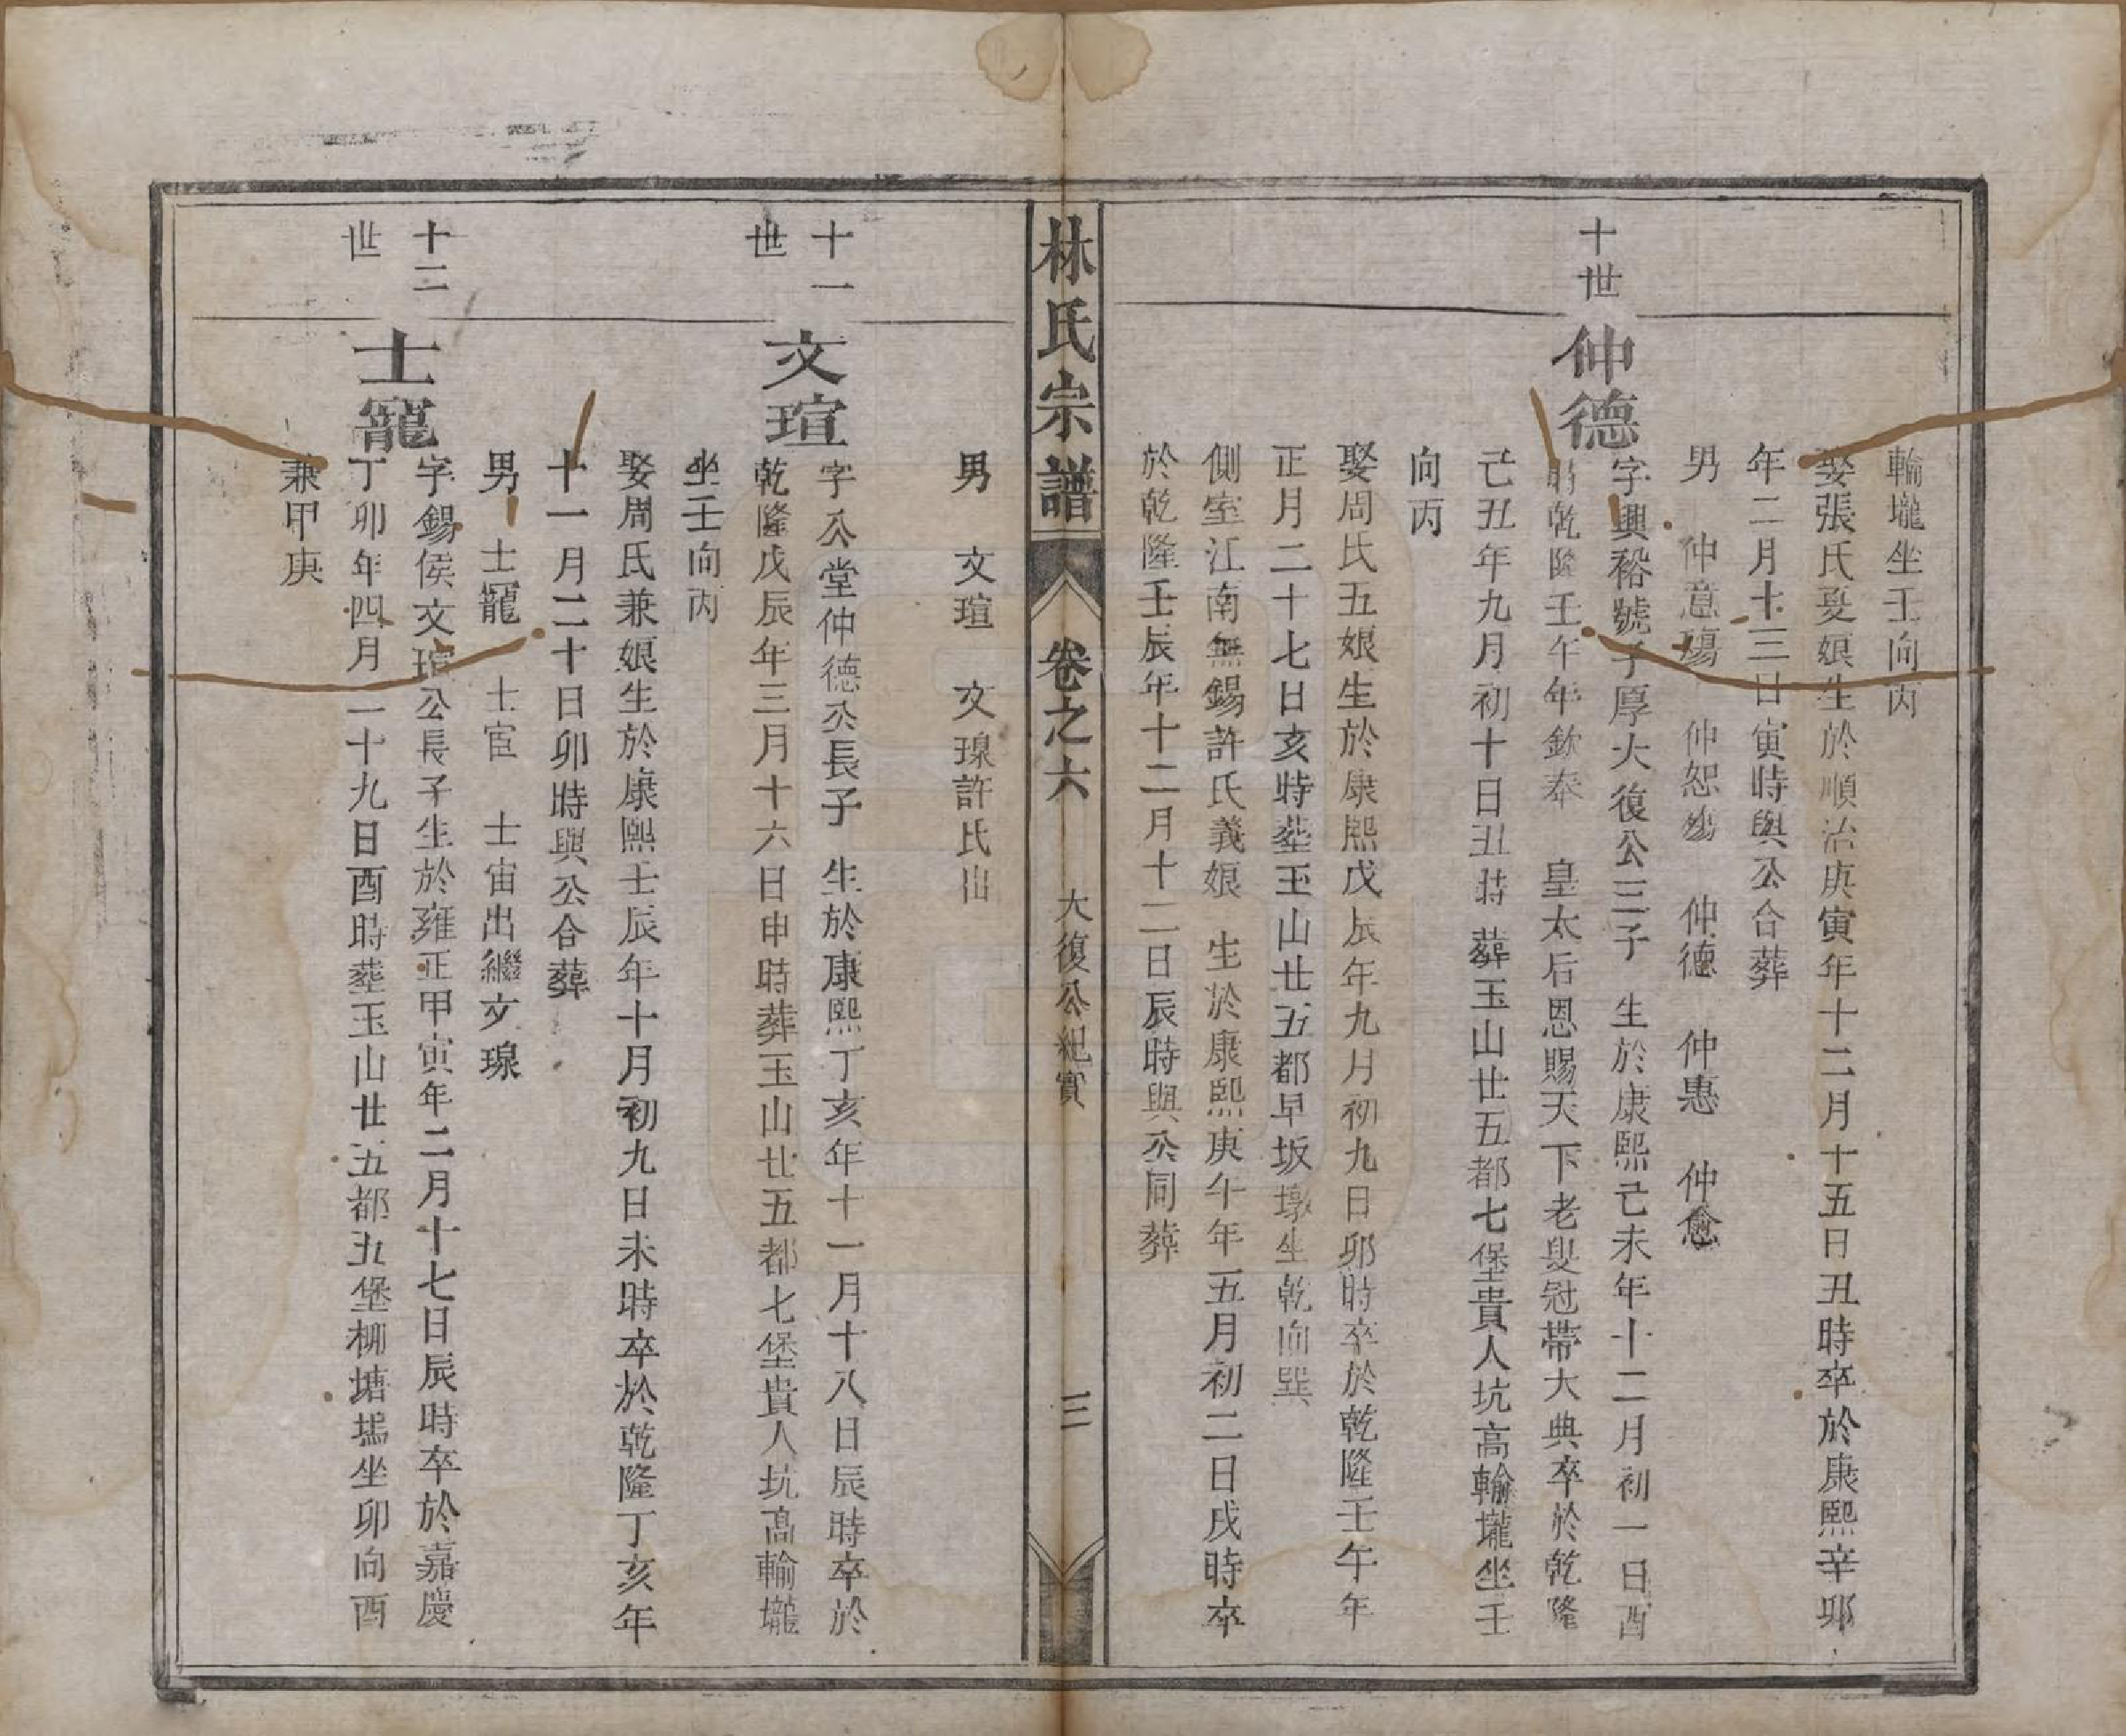 輪壠坐壬向丙
娶張氏夏娘生於順治庚寅年十二月十五日丑時卒於康熙辛卯
年二月十三日寅時與公合葬
男 仲意殤 仲恕殤 仲德 仲惠 仲愈
十世
仲德
字興裕號子厚大復公三子 生於康熙己未年十二月初一日酉
時乾隆壬午年欽奉 皇太后恩賜天下老叟冠帶大典卒於乾隆
己丑年九月初十日丑時葬玉山廿五都七堡貴人坑高輪壠坐壬
向丙
娶周氏五娘生於康熙戊辰年九月初九日卯時卒於乾隆壬午年
正月二十七日亥時塟玉山廿五都早坂墩坐乾向巽
側室江南無錫許氏義娘 生於康熙庚午年五月初二日戌時卒
於乾隆壬辰年十二月十二日辰時與公同葬
林氏宗譜 卷之六 大復公紀實 三
男 文瑄 文瑔許氏出
十一
世
文瑄
字公堂仲德公長子 生於康熙丁亥年十一月十八日辰時卒於
乾隆戊辰年三月十六日申時葬玉山廿五都七堡貴人坑高輪壠
坐壬向丙
娶周氏兼娘生於康熙壬辰年十月初九日未時卒於乾隆丁亥年
十一月二十日卯時與公合葬
男 士寵 士宦 士宙出繼文瑔
十二
世
士寵
字錫侯文瑄公長子生於雍正甲寅年二月十七日辰時卒於嘉慶
丁卯年四月二十九日酉時塟玉山廿五都五堡柳塘塢坐卯向酉
兼甲庚